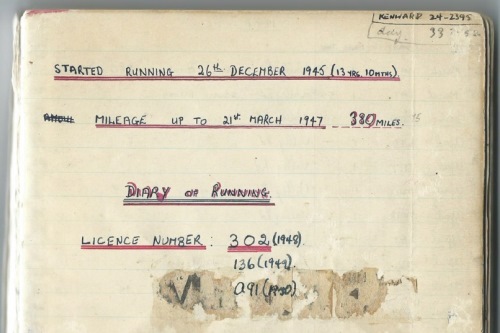 KENWARD 24-2395
STARTED RUNNING 26th DECEMBER 1945 (13 YRS. 10 MTHS)
MILEAGE UP TO 21st MARCH 1947 380 MILES.
DIARY OF RUNNING.
LICENCE NUMBER: 302 (1948)
136 (1949)
A91 (1950)